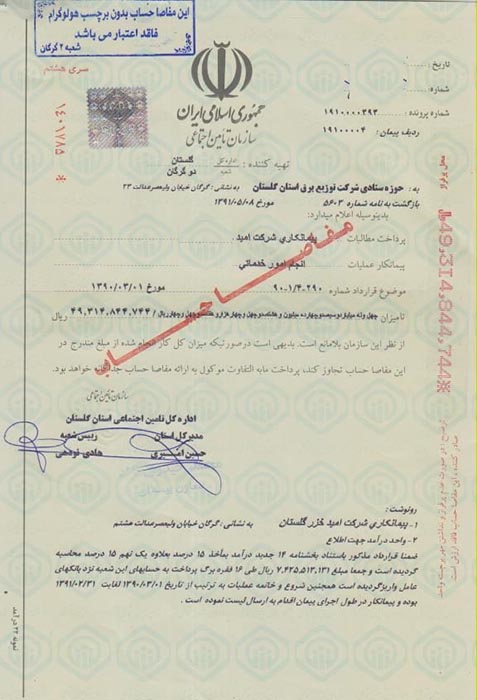 این مفاصا حساب بدون برچسب هولوگرام
فاقد اعتبار می باشد
شعبه ۲ گرگان
سری هشتم
۵۷۸۱۰۴۱ *
جمهوری اسلامی ایران
سازمان تأمین اجتماعی
تاریخ :
شماره :
شماره پرونده : ۱۹۱۰۰۰۰۳۹۳
ردیف پیمان : ۱۹۱۰۰۰۰۴
تهیه کننده : اداره کل گلستان
شعبه دو گرگان
محل پرفراژ
به : حوزه ستادی شرکت توزیع برق استان گلستان به نشانی : گرگان خیابان ولیعصرعدالت ۲۳
بازگشت به نامه شماره ۵۶۰۳ مورخ ۱۳۹۱/۰۵/۰۸
بدینوسیله اعلام میدارد:
پرداخت مطالبات پیمانکاری شرکت امید
پیمانکار عملیات انجام امور خدماتی
موضوع قرارداد شماره ۹۰-۱/۴-۲۹۰ مورخ ۱۳۹۰/۰۳/۰۱
تامیزان چهل ونه میلیاردوسیصدوچهارده میلیون و هشتصدوچهل وچهار هزارو هفتصدوچهل وچهارریال / ۴۹,۳۱۴,۸۴۴,۷۴۴ ریال
از نظر این سازمان بلامانع است. بدیهی است درصورتیکه میزان کل کار انجام شده از مبلغ مندرج در
این مفاصا حساب تجاوز کند، پرداخت مابه التفاوت موکول به ارائه مفاصا حساب جداگانه خواهد بود.
مفاصا حساب
49,314,844,744*
سازمان تأمین اجتماعی
اداره کل تامین اجتماعی استان گلستان
مدیرکل استان رییس شعبه
حسین امیری هادی نودهی
رونوشت :
۱- پیمانکاری شرکت امید خزر گلستان به نشانی : گرگان خیابان ولیعصرعدالت هشتم
۲- واحد درآمد جهت اطلاع
ضمنا قرارداد مذکور باستناد بخشنامه ۱۴ جدید درآمد بمأخذ ۱۵ درصد بعلاوه یک نهم ۱۵ درصد محاسبه
گردیده است و جمعا مبلغ ۷,۴۲۵,۵۱۳,۱۳۱ ریال طی ۱۶ فقره برگ پرداخت به حسابهای این شعبه نزد بانکهای
عامل واریزگردیده است همچنین شروع و خاتمه عملیات به ترتیب از تاریخ ۱۳۹۰/۰۳/۰۱ لغایت ۱۳۹۱/۰۲/۳۱
بوده و پیمانکار در طول اجرای پیمان اقدام به ارسال لیست نموده است .
نمونه ۲۲ درآمد